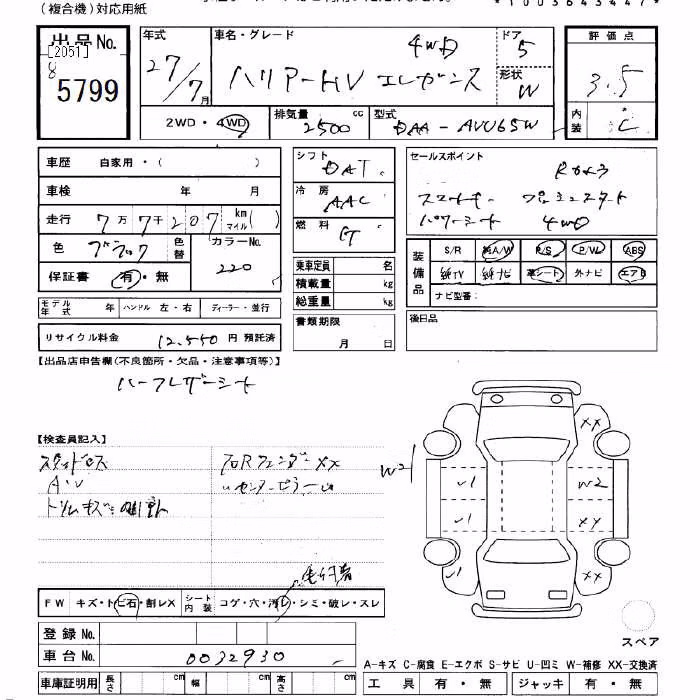 (複合機)対応用紙
出品No.
[2051]
8
5799
年式
27/7月
車名・グレード
4WD
ハリアーHV エレガンス
ドア
5
形状
W
評価点
3.5
内装
C
2WD・4WD
排気量
2500 cc
型式
DAA-AVU65W
車歴 自家用・( )
車検 年 月
走行 7万7千207 km マイル( )
色 ブラック 色替
カラーNo.
220
保証書 有・無
シフト DAT
冷房 AAC
燃料 G
乗車定員 名
積載量 kg
総重量 kg
書類期限
月 日
セールスポイント
Rカメラ
スマートキー プッシュスタート
パワーシート 4WD
装備品
S/R 純A/W P/S P/W ABS
純TV 純ナビ 革シート 外ナビ エアB
ナビ型番:
後日品
モデル年式 年 ハンドル 左・右 ディーラー・並行
リサイクル料金 12,550円 預託済
【出品店申告欄(不良箇所・欠品・注意事項等)】
ハーフレザーシート
【検査員記入】
A/V
トリムキズ
XX
W2
XX
W2
XX
XX
FW キズ・トビ石・割レX シート内装 コゲ・穴・汚レ・シミ・破レ・スレ
登録No.
車台No. 0032930
車庫証明用 長さ cm 幅 cm 高さ cm
スペア
A-キズ C-腐食 E-エクボ S-サビ U-凹ミ W-補修 XX-交換済
工具 有・無 ジャッキ 有・無